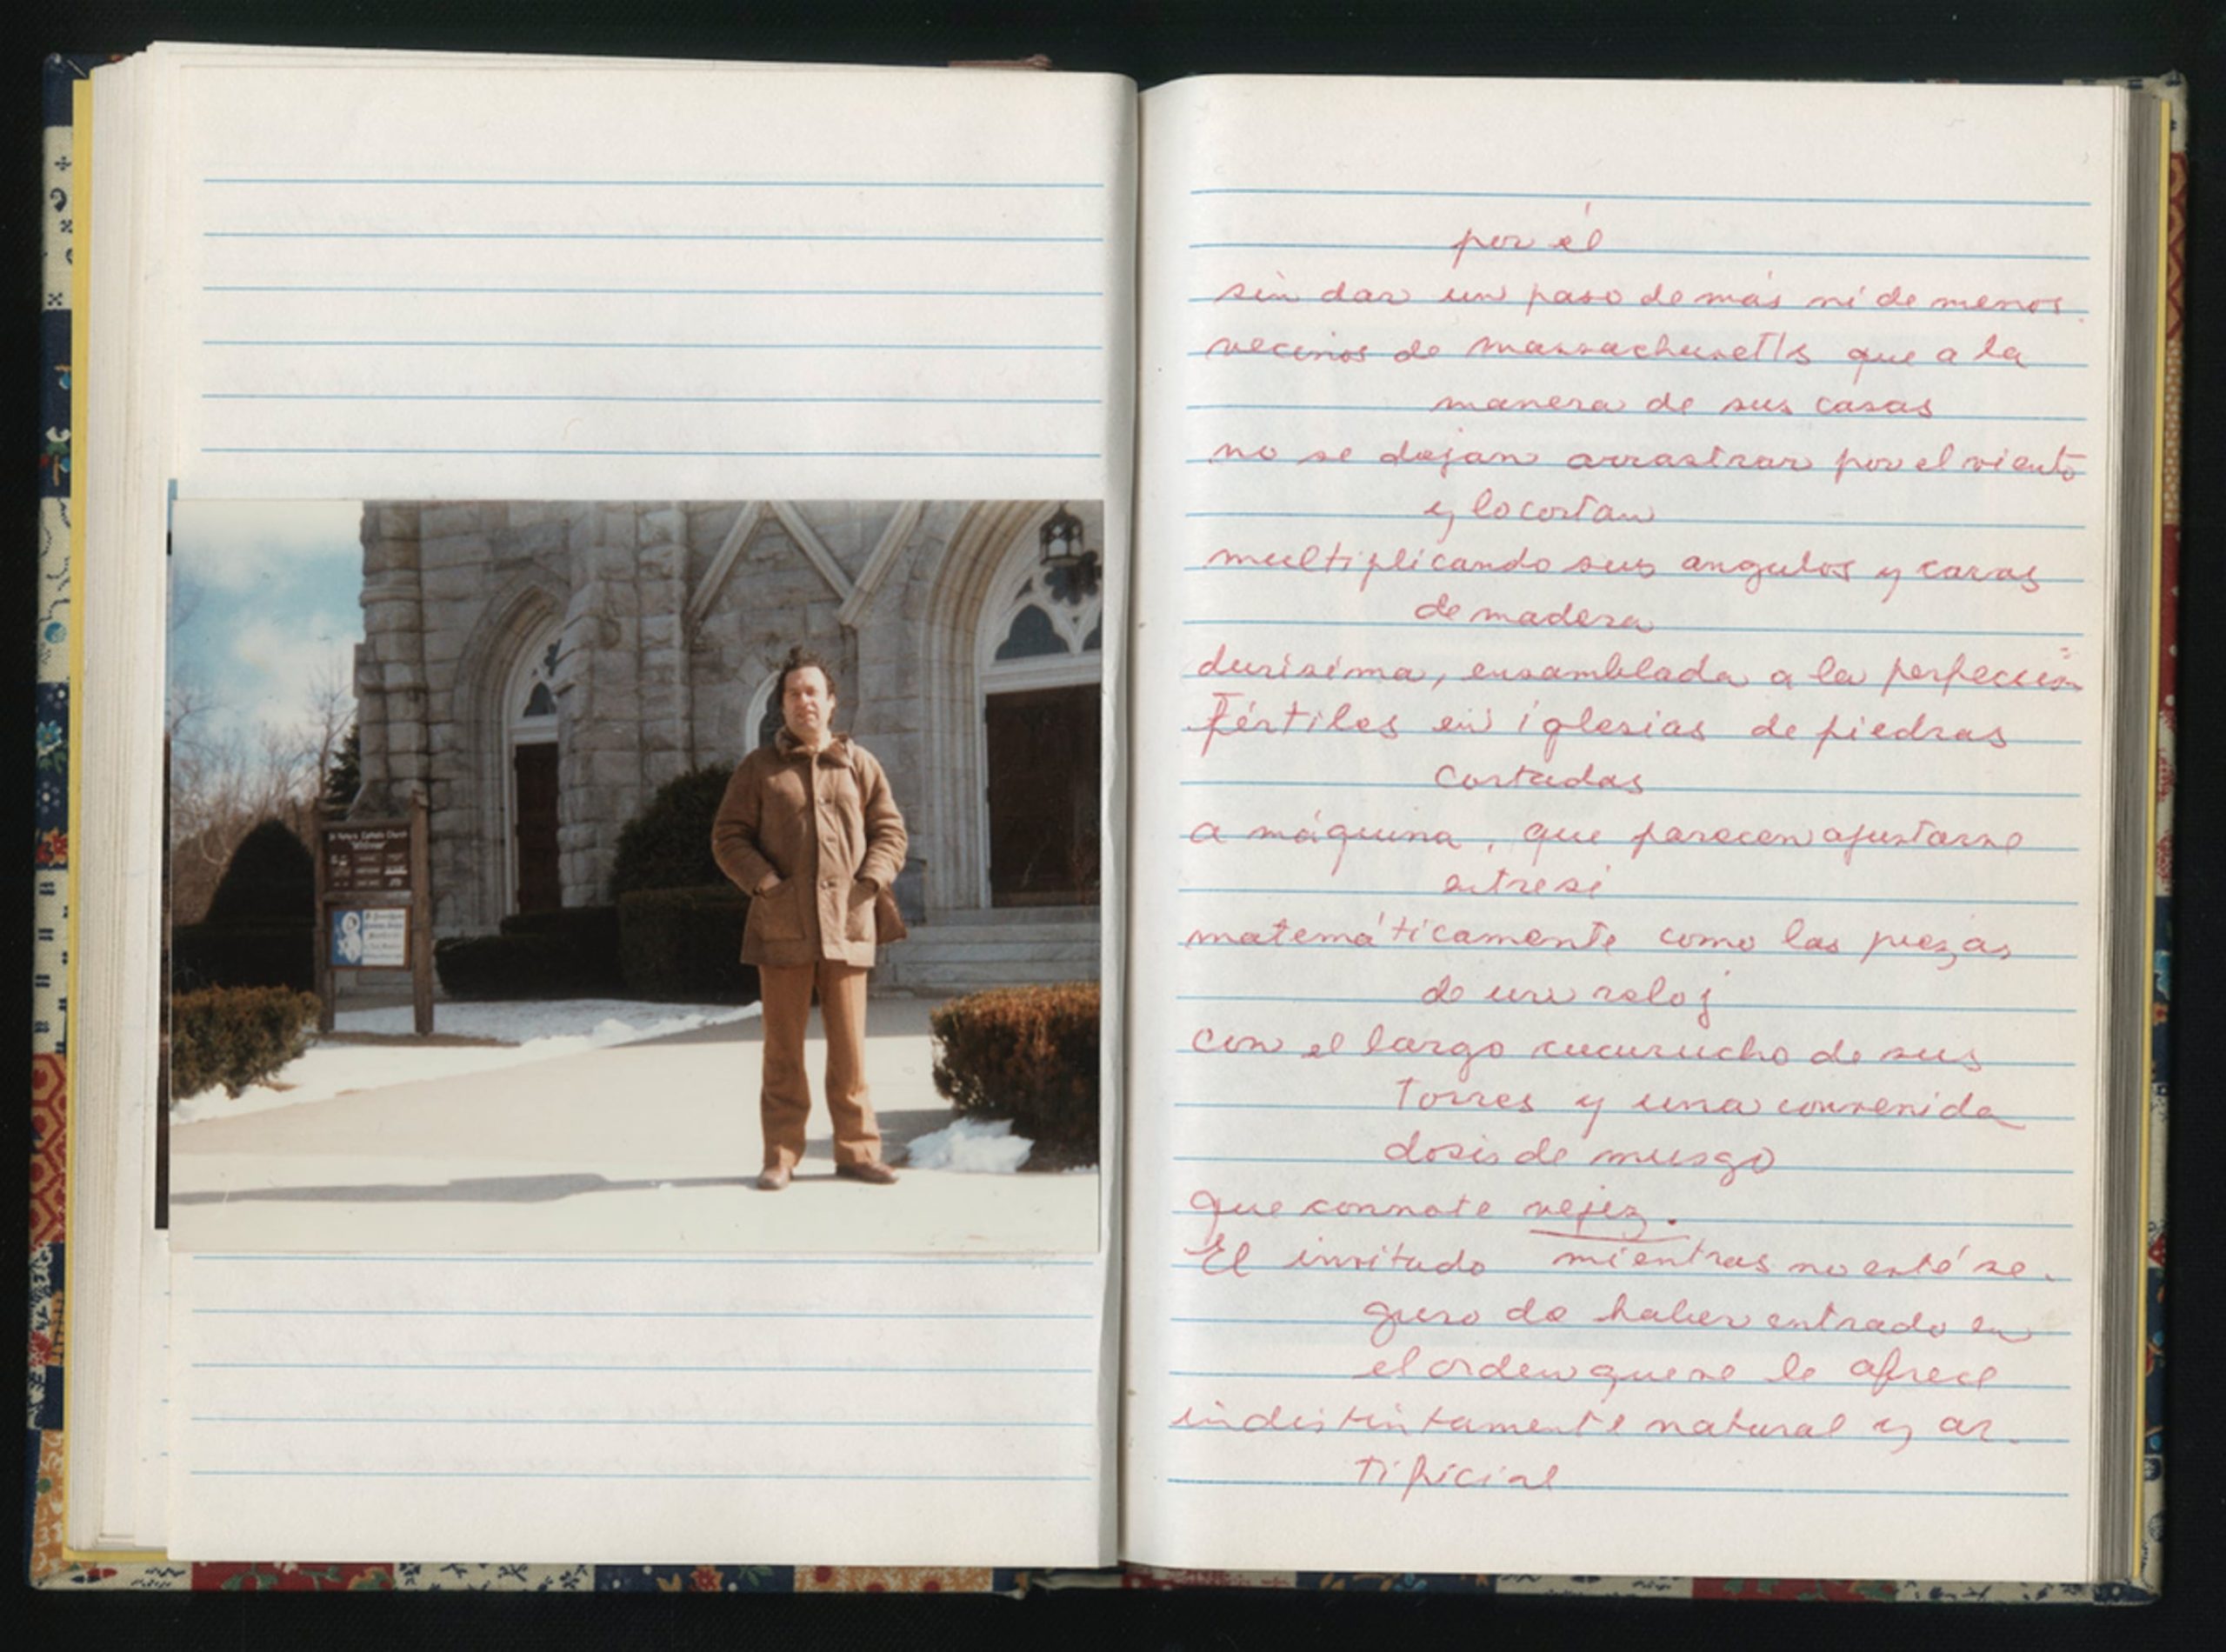 St Mary's Catholic Church
por él
sin dar un paso de más ni de menos.
vecinos de massachusetts que a la
manera de sus casas
no se dejan arrastrar por el viento
y lo cortan
multiplicando sus angulos y caras
de madera
durisima, ensamblada a la perfección
Fértiles en iglesias de piedras
cortadas
a máquina, que parecen ajustarse
entre si
matemáticamente como las piezas
de un reloj
con el largo cucurucho de sus
torres y una convenida
dosis de musgo
que connote vejez.
El invitado mientras no esté se-
guro de haber entrado en
el orden que se le ofrece
indistintamente natural y ar-
tificial